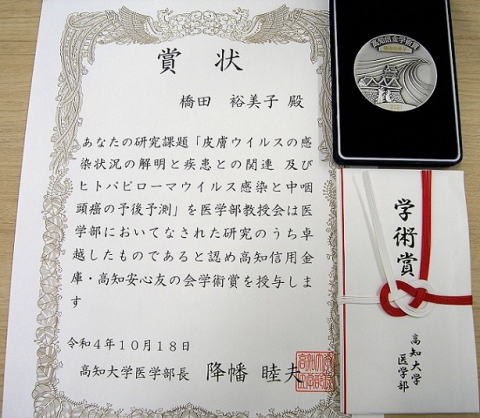 賞状
橋田 裕美子 殿
あなたの研究課題「皮膚ウイルスの感
染状況の解明と疾患との関連 及び
ヒトパピローマウイルス感染と中咽
頭癌の予後予測」を医学部教授会は医
学部においてなされた研究のうち卓
越したものであると認め高知信用金
庫・高知安心友の会学術賞を授与しま
す
令和4年10月18日
高知大学医学部長 降幡 睦夫
学術賞
高知大学
医学部